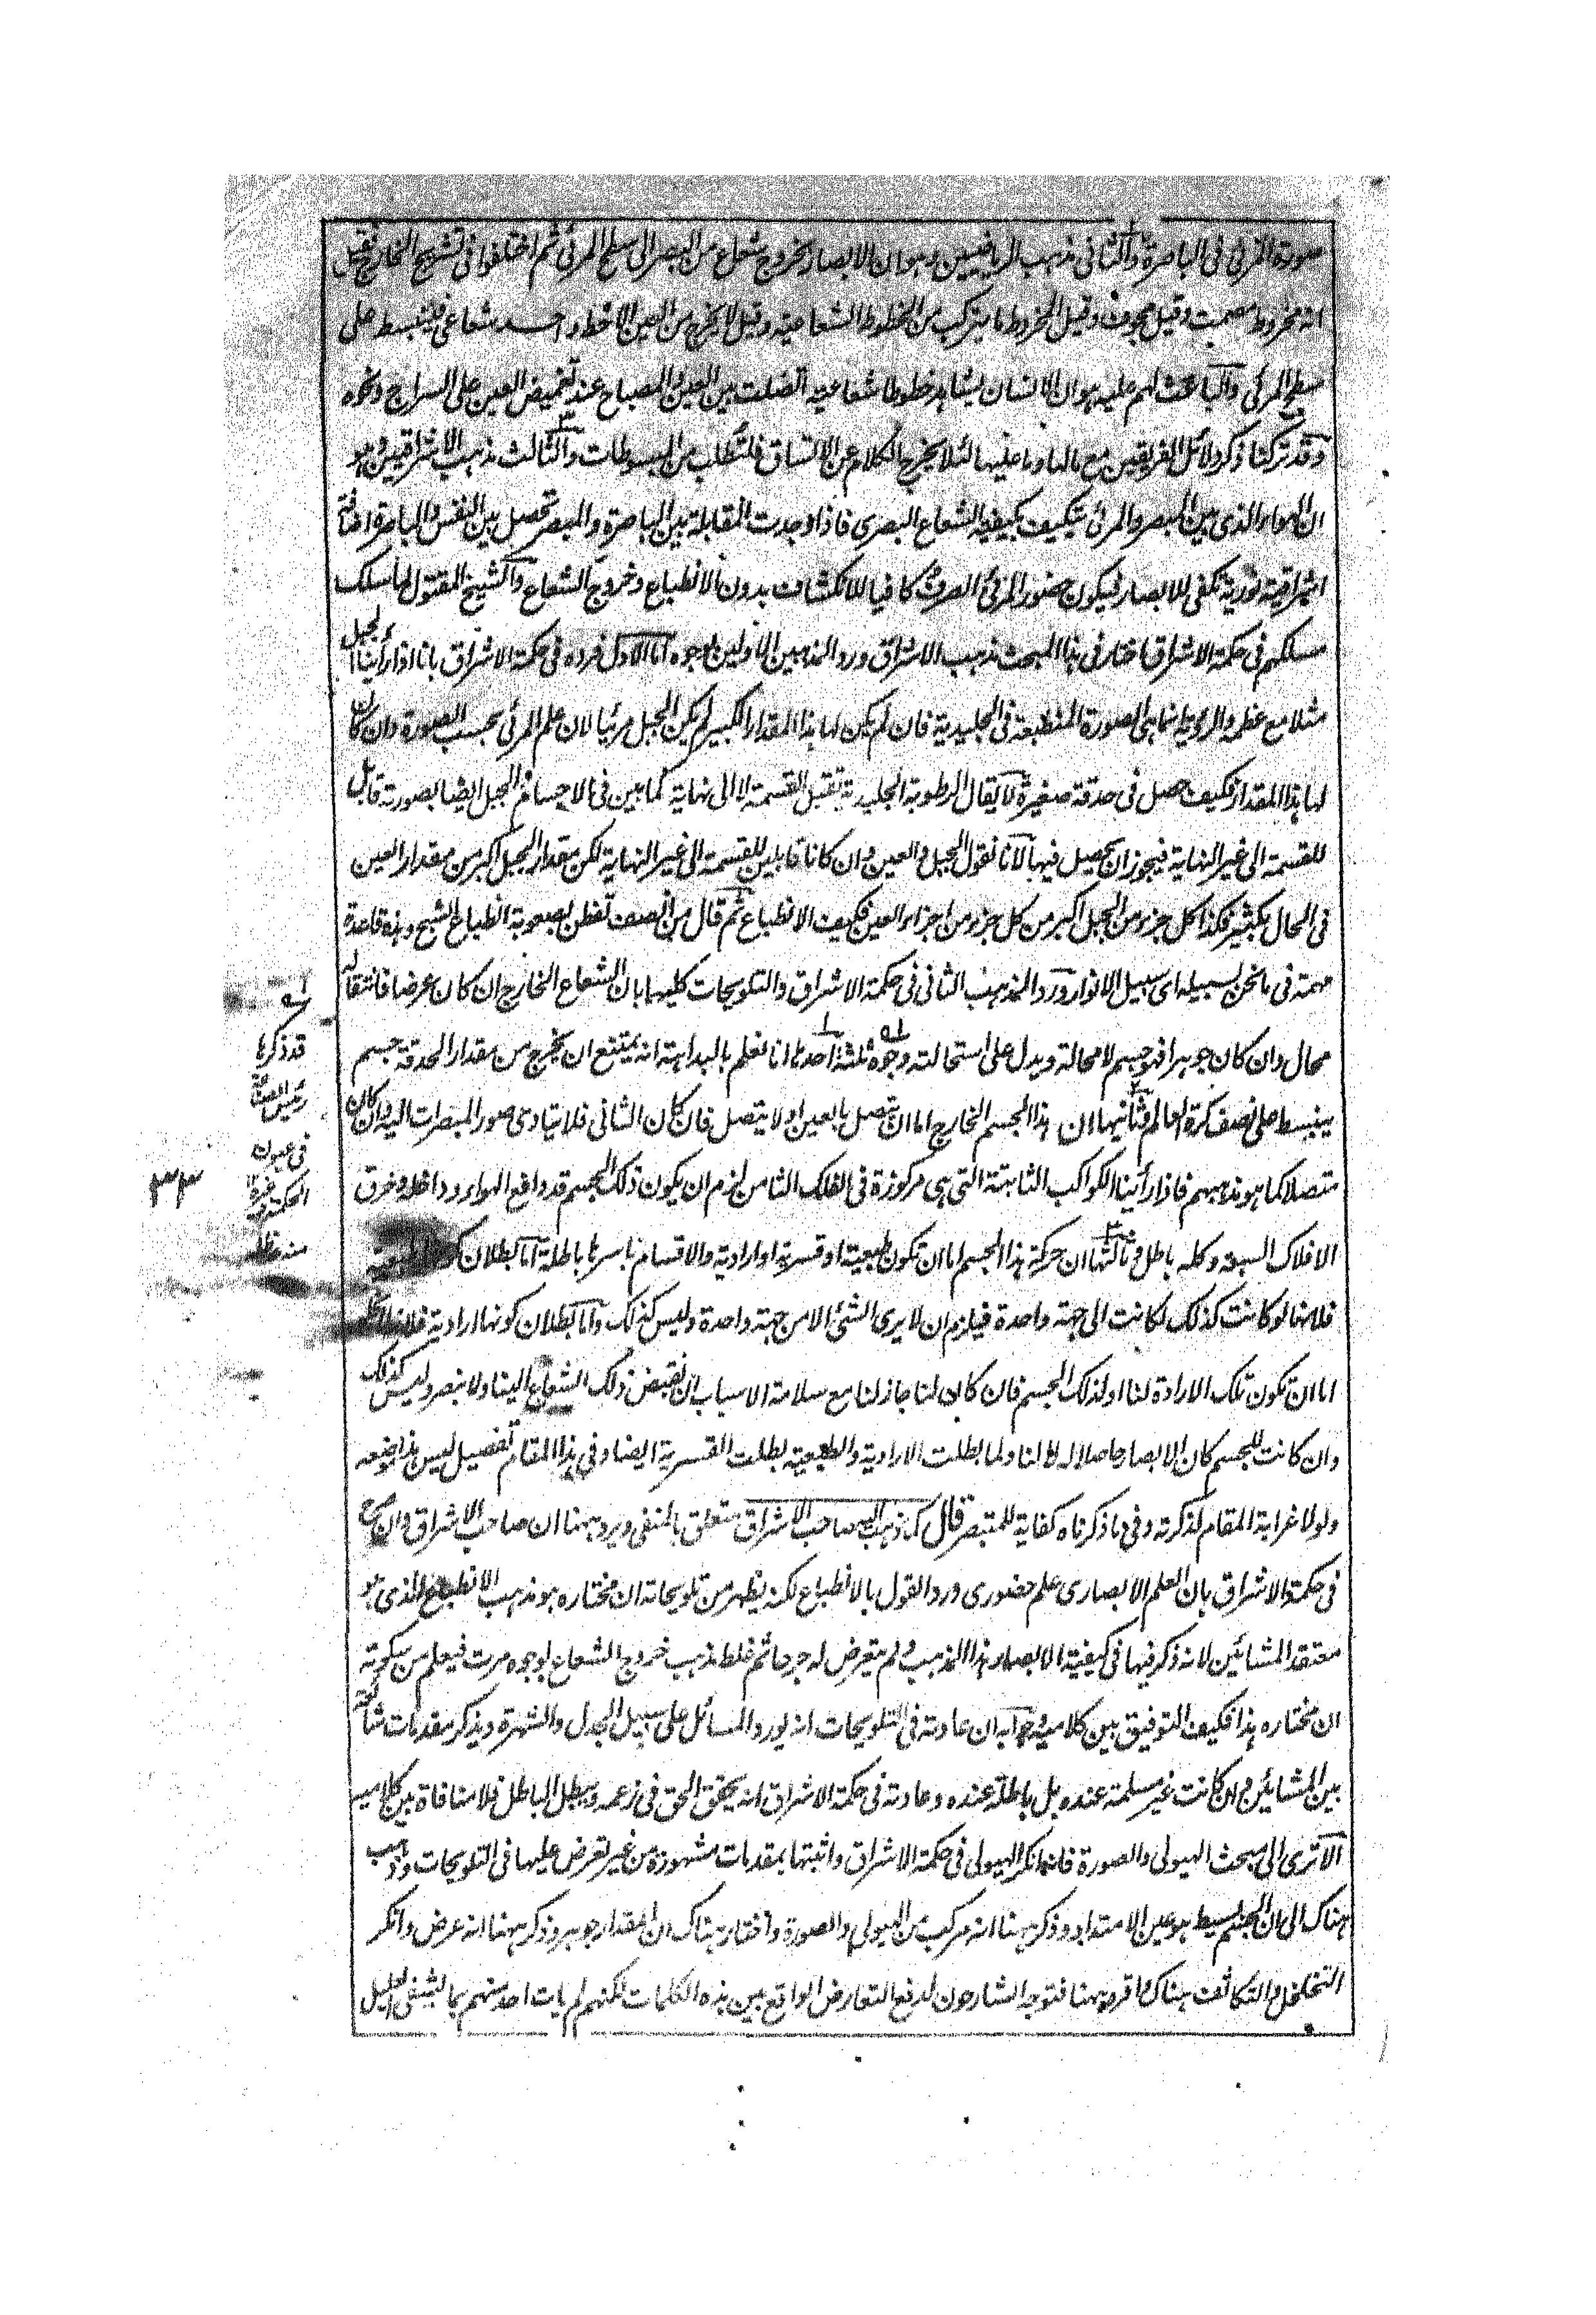 صورة المرئى فى الباصرة والثانى مذهب الرياضيين وهو ان الابصار بخروج شعاع من البصر الى سطح المرئى ثم اختلفوا فى تشريح الخارج فقيل
انه مخروط مصمت وقيل مجوف وقيل المخروط ما يتركب من الخطوط الشعاعية وقيل لا يخرج من العين الا خط واحد شعاعى فينبسط على
سطح المرئى والباعث لهم عليه هو ان الانسان يشاهد خطوطا شعاعية اتصلت بين العين والمصباح عند تغميض العين على السراج ونحوه
وقد تركنا ذكر دلائل الفريقين مع مالها وما عليها لئلا يخرج الكلام عن الاتساق فلتطلب من المبسوطات والثالث مذهب الاشراقيين وهو
ان الهواء الذى بين البصر والمرئى يتكيف بكيفية الشعاع البصرى فاذا وجدت المقابلة بين الباصرة والمبصر تحصل بين النفس والباصرة اضافة
اشراقية نورية تكفى للابصار فيكون حضور المرئى الصرف كافيا للانكشاف بدون الانطباع وخروج الشعاع والشيخ المقتول لما سلك
مسلكهم فى حكمة الاشراق اختار فى هذا المبحث مذهب الاشراق ورد المذهبين الاولين بوجوه اما الاول فرده فى حكمة الاشراق بانا اذا رأينا الجبل
مثلا مع عظمه والرؤية انما هى الصورة المنطبعة فى الجليدية فان لم يكن لها هذا المقدار الكبير لم يكن الجبل مرئيا لان علم المرئى بحسب الصورة وان كان
لها هذا المقدار فكيف حصل فى حدقة صغيرة لا يقال الرطوبة الجليدية تقبل القسمة لا الى نهاية كما بين فى الاجسام والجبل ايضا بصورته قابل
للقسمة الى غير النهاية فيجوز ان يحصل فيها لانا نقول الجبل والعين وان كانا قابلين للقسمة الى غير النهاية لكن مقدار الجبل اكبر من مقدار العين
فى الحال بكثير فكذا كل جزء من الجبل اكبر من كل جزء من اجزاء العين فكيف الانطباع ثم قال من انصف تفطن بصعوبة انطباع الشبح وهذه قاعدة
مهمة فى ما نحن بسبيله اى سبيل الانوار ورد المذهب الثانى فى حكمة الاشراق والتلويحات كليهما بان الشعاع الخارج ان كان عرضا فانتقاله
محال وان كان جوهرا فهو جسم لا محالة ويدل على استحالته وجوه ثلثة احدها انا نعلم بالبداهة انه يمتنع ان يخرج من مقدار الحدقة جسم
ينبسط على نصف كرة العالم وثانيها ان هذا الجسم الخارج اما ان يتصل بالعين او لا يتصل فان كان الثانى فلا يتادى صور المبصرات اليه وان كان
متصلا كما هو مذهبهم فاذا رأينا الكواكب الثابتة التى هى مركوزة فى الفلك الثامن لزم ان يكون ذلك الجسم قد دافع الهواء وداخله وخرق
الافلاك السبعة وكله باطل وثالثها ان حركة هذا الجسم اما ان تكون طبيعية او قسرية او ارادية والاقسام باسرها باطلة اما بطلان
فلانها لو كانت كذلك لكانت الى جهة واحدة فيلزم ان لا يرى الشئ الا من جهة واحدة وليس كذلك واما بطلان كونها ارادية
اما ان تكون تلك الارادة لنا او لذلك الجسم فان كان لنا جاز لنا مع سلامة الاسباب ان نقبض ذلك الشعاع الينا ولا نبصر وليس كذلك
وان كانت للجسم كان الابصار حاصلا له لا لنا ولما بطلت الارادية والطبعية بطلت القسرية ايضا وفى هذا المقام تفصيل ليس هذا موضعه
ولولا غرابة المقام لذكرته وفى ما ذكرناه كفاية للمتبصر قال كما ذهب اليه صاحب الاشراق متعلق بالمنفى ويرد ههنا ان صاحب الاشراق وان صرح
فى حكمة الاشراق بان العلم الابصارى علم حضورى ورد القول بالانطباع لكنه يظهر من تلويحاته ان مختاره هو مذهب الانطباع الذى هو
معتقد المشائين لانه ذكر فيها فى كيفية الابصار هذا المذهب ولم يتعرض له جرحا ثم غلط مذهب خروج الشعاع لوجوه مرت فيعلم من سكوته
ان مختاره هذا فكيف التوفيق بين كلاميه وجوابه ان عادته فى التلويحات انه يورد المسائل على سبيل الجدل والشهرة ويذكر مقدمات شائعة
بين المشائين وان كانت غير مسلمة عنده بل باطلة عنده وعادته فى حكمة الاشراق انه يحقق الحق فى زعمه ويبطل الباطل فلا منافاة بين كلاميه
الا ترى الى مبحث الهيولى والصورة فانه انكر الهيولى فى حكمة الاشراق واثبتها بمقدمات مشهورة من غير تعرض عليها فى التلويحات وذهب
هناك الى ان الجسم بسيط هو عين الامتداد وذكر ههنا انه مركب من الهيولى والصورة واختار هناك ان المقدار جوهر وذكر ههنا انه عرض وانكر
التخلخل والتكاثف هناك واقر به ههنا فتوجه الشارحون لدفع التعارض الواقع بين هذه الكلمات لكنهم لم يات احد منهم بما يشفى العليل
قد ذكرها
رئيس الصناعة
فى عيون
الحكمة وغيره
منه مد ظله
٣٣